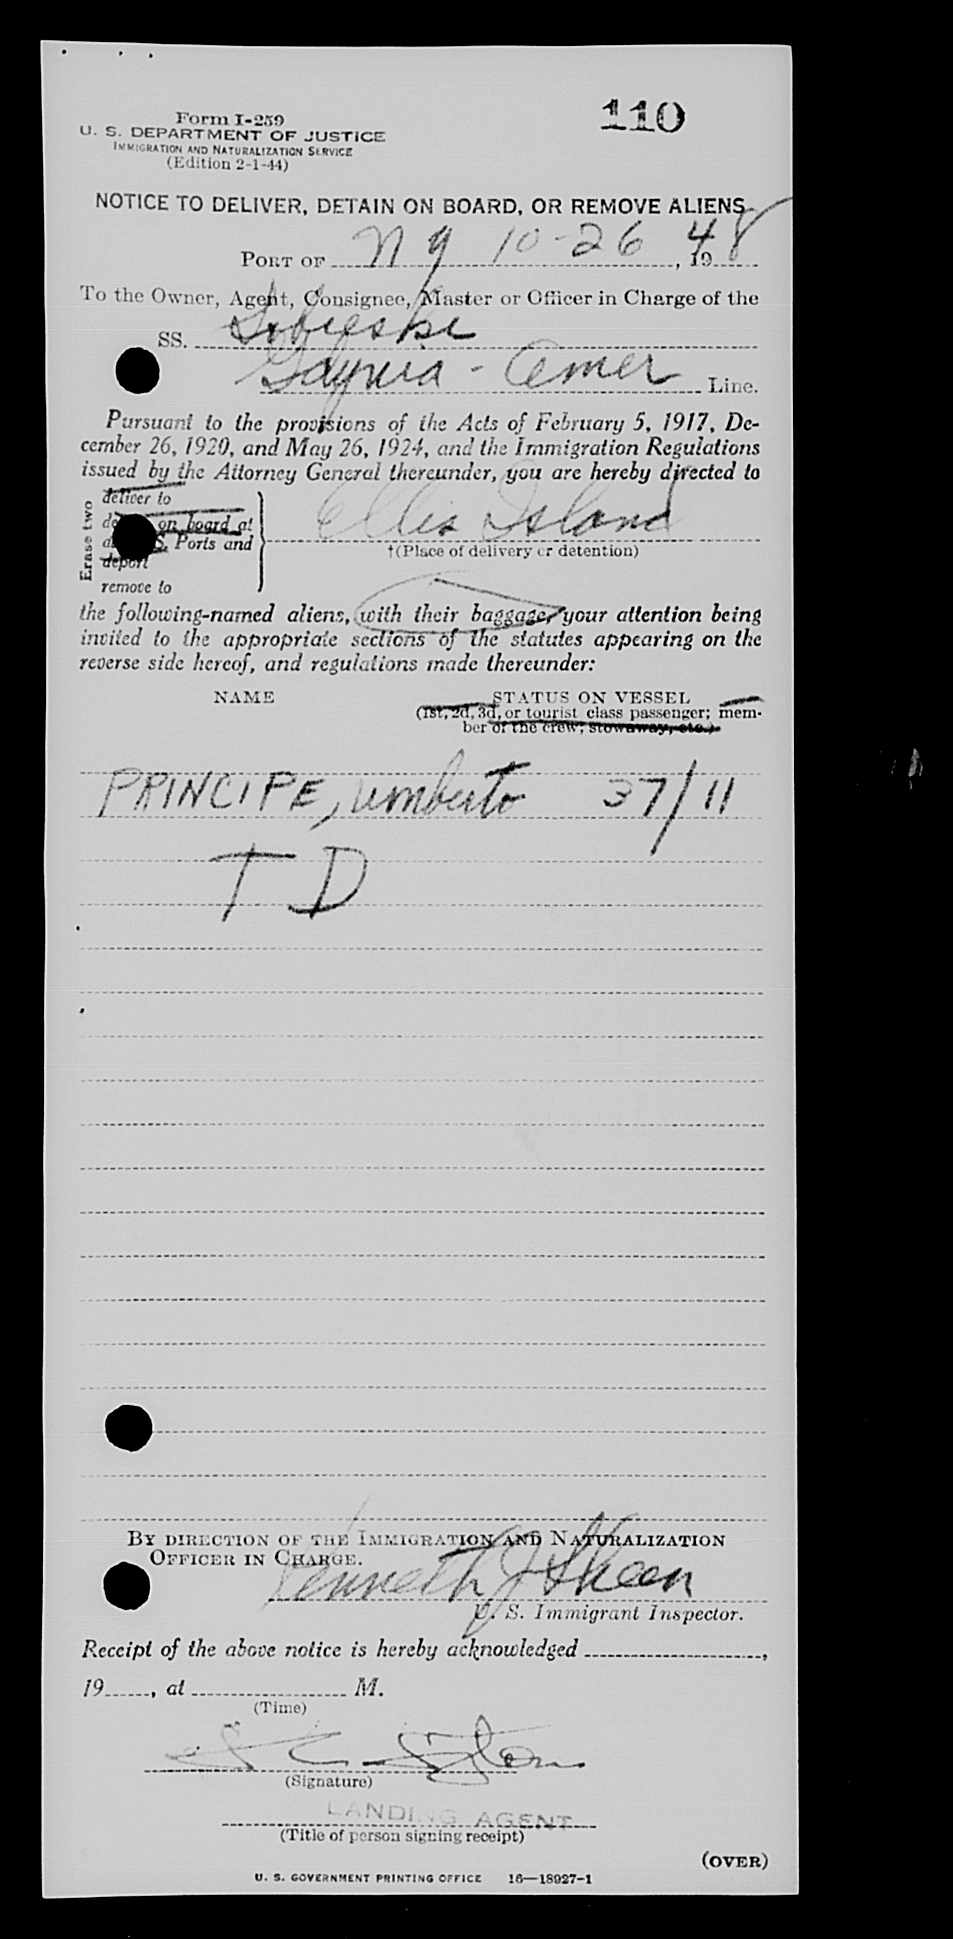 110
Form I-259
U. S. DEPARTMENT OF JUSTICE
IMMIGRATION AND NATURALIZATION SERVICE
(Edition 2-1-44)
NOTICE TO DELIVER, DETAIN ON BOARD, OR REMOVE ALIENS
PORT OF N Y 10-26, 1948
To the Owner, Agent, Consignee, Master or Officer in Charge of the
SS. Sobieski
Gdynia - Amer Line.
Pursuant to the provisions of the Acts of February 5, 1917, De-
cember 26, 1920, and May 26, 1924, and the Immigration Regulations
issued by the Attorney General thereunder, you are hereby directed to
Erase two
deliver to
on board at
S. Ports and
deport
remove to
Ellis Island
†(Place of delivery or detention)
the following-named aliens, with their baggage, your attention being
invited to the appropriate sections of the statutes appearing on the
reverse side hereof, and regulations made thereunder:
NAME STATUS ON VESSEL
(1st, 2d, 3d, or tourist class passenger; mem-
ber of the crew; stowaway, etc.)
PRINCIPE, Umberto 37/11
T D
BY DIRECTION OF THE IMMIGRATION AND NATURALIZATION
OFFICER IN CHARGE.
Kenneth J Sheen
U. S. Immigrant Inspector.
Receipt of the above notice is hereby acknowledged ,
19 , at M.
(Time)
(Signature)
LANDING AGENT
(Title of person signing receipt)
(OVER)
U. S. GOVERNMENT PRINTING OFFICE 16—18927-1